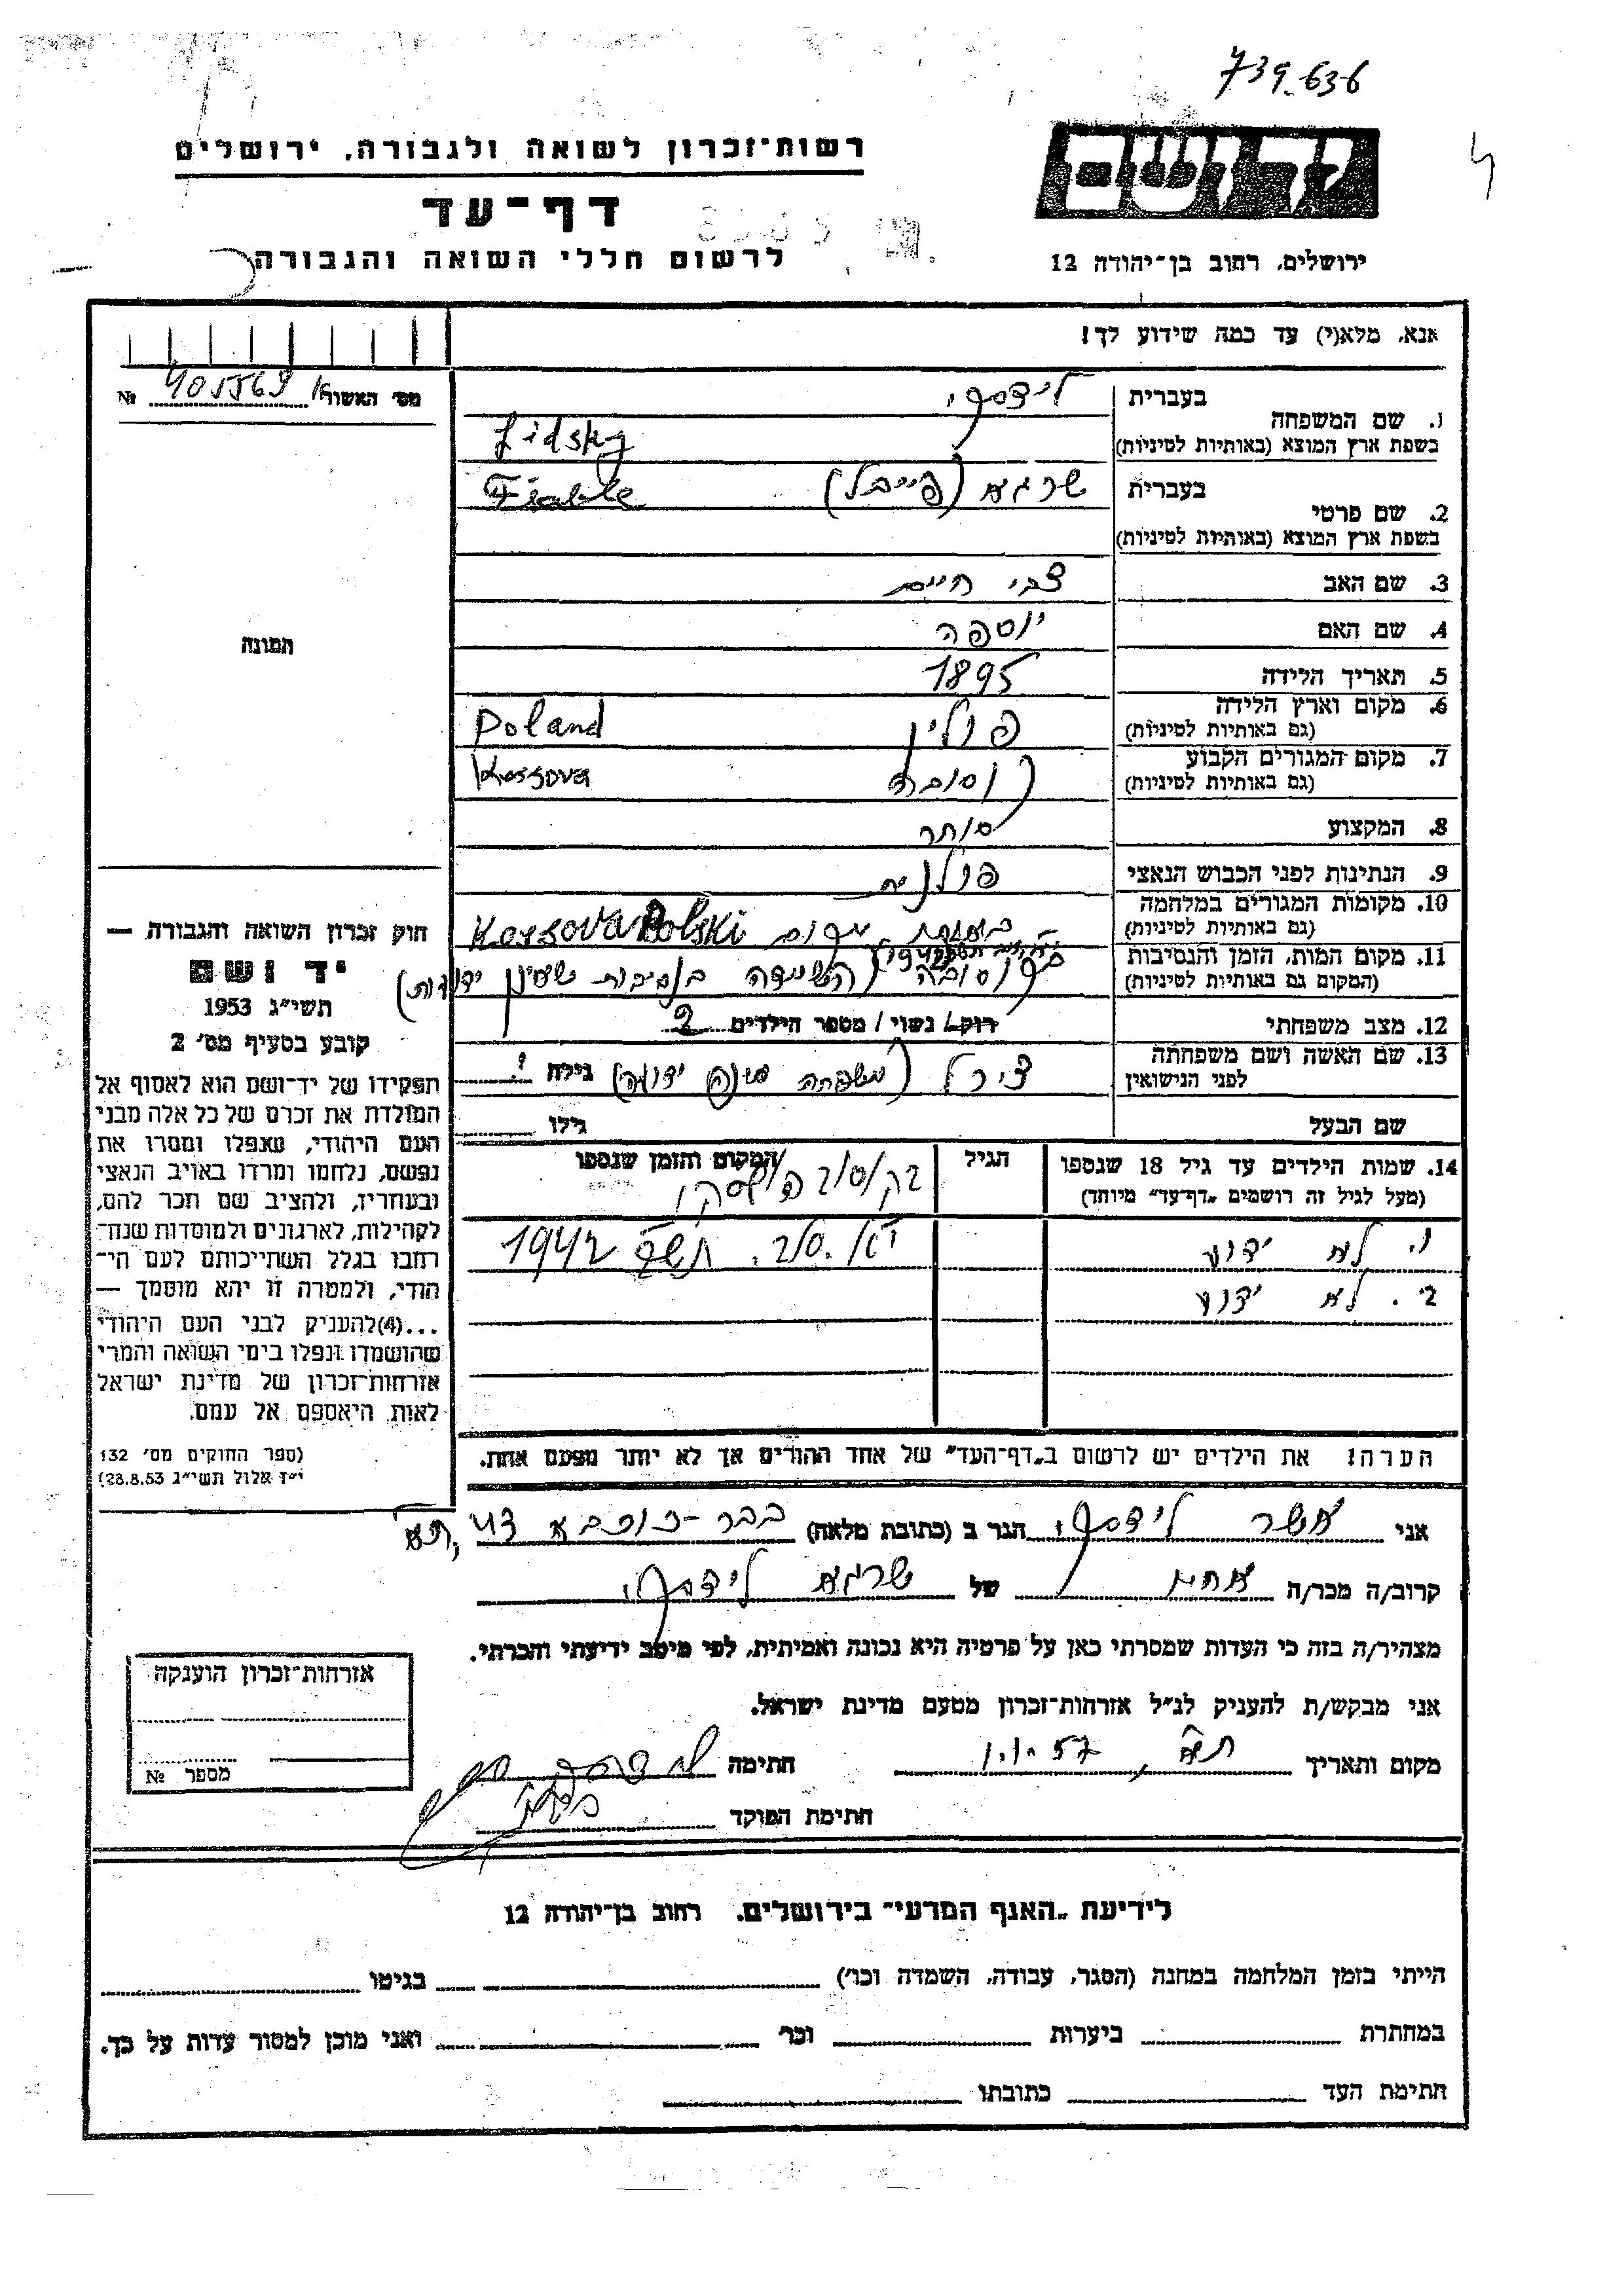 739-636
רשות־זכרון לשואה ולגבורה, ירושלים
דף־עד
לרשום חללי השואה והגבורה
יד ושם
ירושלים, רחוב בן־יהודה 12
אנא, מלא(י) עד כמה שידוע לך!
מס׳ האשור № 405569
תמונה
חוק זכרון השואה והגבורה —
יד ושם
תשי״ג 1953
קובע בסעיף מס׳ 2
תפקידו של יד־ושם הוא לאסוף אל
המולדת את זכרם של כל אלה מבני
העם היהודי, שנפלו ומסרו את
נפשם, נלחמו ומרדו באויב הנאצי
ובעוזריו, ולהציב שם וזכר להם,
לקהילות, לארגונים ולמוסדות שנח־
רבו בגלל השתייכותם לעם הי־
הודי, ולמטרה זו יהא מוסמך —
...(4)להעניק לבני העם היהודי
שהושמדו ונפלו בימי השואה והמרי
אזרחות־זכרון של מדינת ישראל
לאות היאספם אל עמם.
(ספר החוקים מס׳ 132
י״ז אלול תשי״ג 28.8.53)
בעברית לידסקי
1. שם המשפחה
בשפת ארץ המוצא (באותיות לטיניות) Lidsky
בעברית שרגא (פייבל) Fiable
2. שם פרטי
בשפת ארץ המוצא (באותיות לטיניות)
3. שם האב צבי חיים
4. שם האם יוספה
5. תאריך הלידה 1895
6. מקום וארץ הלידה פולין Poland
(גם באותיות לטיניות)
7. מקום המגורים הקבוע קוסובה Kossova
(גם באותיות לטיניות)
8. המקצוע סוחר
9. הנתינות לפני הכבוש הנאצי פולנית
10. מקומות המגורים במלחמה באותו מקום Kossova Polski
(גם באותיות לטיניות)
11. מקום המות, הזמן והנסיבות בקוסובה (השמידה בנסיבות שאינן ידועות)
(המקום גם באותיות לטיניות)
12. מצב משפחתי רוק/ נשוי/ מספר הילדים 2
13. שם האשה ושם משפחתה צירל (משפחה ידוע) גילה ?
לפני הנישואין
שם הבעל גילו
14. שמות הילדים עד גיל 18 שנספו הגיל המקום והזמן שנספו
(מעל לגיל זה רושמים „דף־עד״ מיוחד)
1. לא ידוע 1942
2. לא ידוע
הערה! את הילדים יש לרשום ב„דף־העד״ של אחד ההורים אך לא יותר מפעם אחת.
אני אשר לידסקי הגר ב (כתובת מלאה) בבר-כוכבא 43 ת״א
קרוב/ה מכר/ה אחיו של שרגא לידסקי
מצהיר/ה בזה כי העדות שמסרתי כאן על פרטיה היא נכונה ואמיתית, לפי מיטב ידיעתי והכרתי.
אני מבקש/ת להעניק לנ״ל אזרחות־זכרון מטעם מדינת ישראל.
מקום ותאריך ת״א, חתימה
חתימת הפוקד
אזרחות־זכרון הוענקה
מספר №
לידיעת „האגף המדעי״ בירושלים, רחוב בן־יהודה 12
הייתי בזמן המלחמה במחנה (הסגר, עבודה, השמדה וכו׳) בגיטו
במחתרת ביערות וכו׳ ואני מוכן למסור עדות על כך.
חתימת העד כתובתו